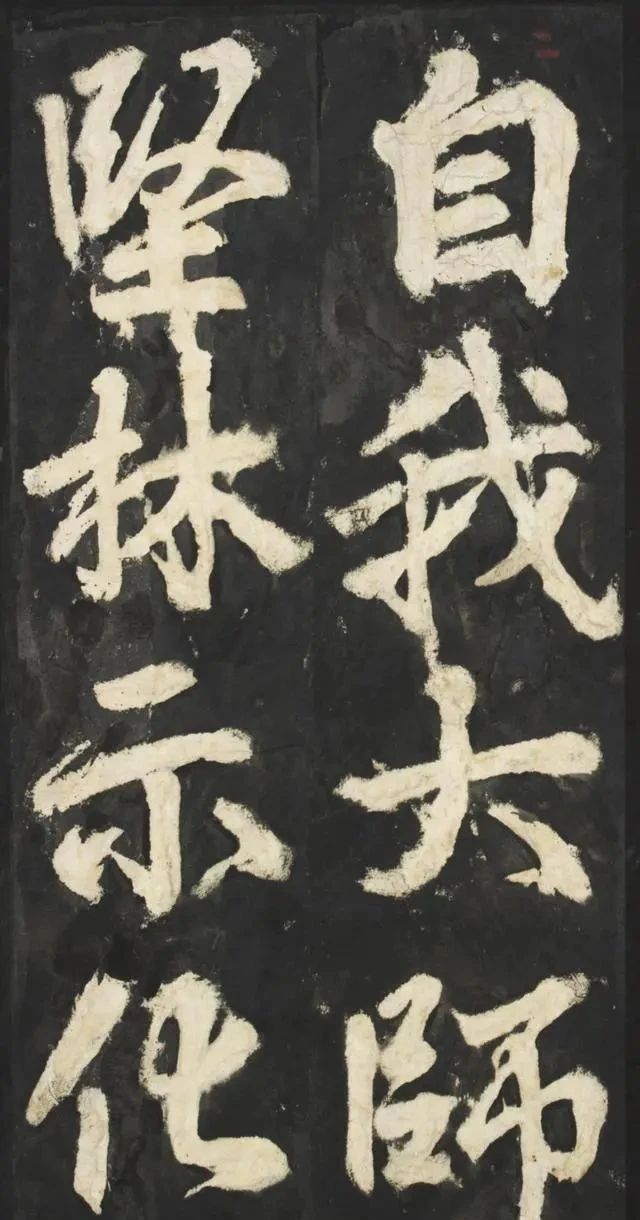 自我大師
堅林示化